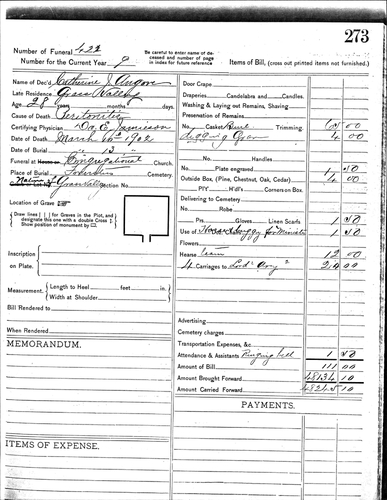 273
Number of Funeral 422
Number for the Current Year 9
Be careful to enter name of deceased and number of page in index for future reference
Items of Bill, (cross out printed items not furnished.)
Name of Dec'd Catherine J. Angove
Late Residence Grass Valley
Age 28 years months days.
Cause of Death Peritonitis
Certifying Physician Dr. E. Jamieson
Date of Death March 1902
Date of Burial " 13 "
Funeral at Congregational Church.
Place of Burial Cemetery.
Native of Grass Valley Section No.
Location of Grave
Draw lines for Graves in the Plot, and designate this one with a double Cross
Show position of monument by
Inscription
on Plate.
Measurement. Length to Heel feet in.
Width at Shoulder
Bill Rendered to
When Rendered
MEMORANDUM.
ITEMS OF EXPENSE.
Door Crape
Draperies Candelabra and Candles.
Washing & Laying out Remains, Shaving
Preservation of Remains
No. Casket Trimming. 00
digging Grave 4 00
No. Handles
Plate engraved 1 50
Outside Box, (Pine, Chestnut, Oak, Cedar) 4 00
P/Y H'dl's Corners on Box
Delivering to Cemetery
No. Robe
Prs. Gloves Linen Scarfs 1 50
Use of Buggy for Minister 1 50
Flowers
Hearse team 12 00
4 Carriages to 24 00
Advertising
Cemetery charges
Transportation Expenses, &c
Attendance & Assistants Ringing bell 1 50
Amount of Bill 111 00
Amount Brought Forward 48134 10
Amount Carried Forward 48245 10
PAYMENTS.